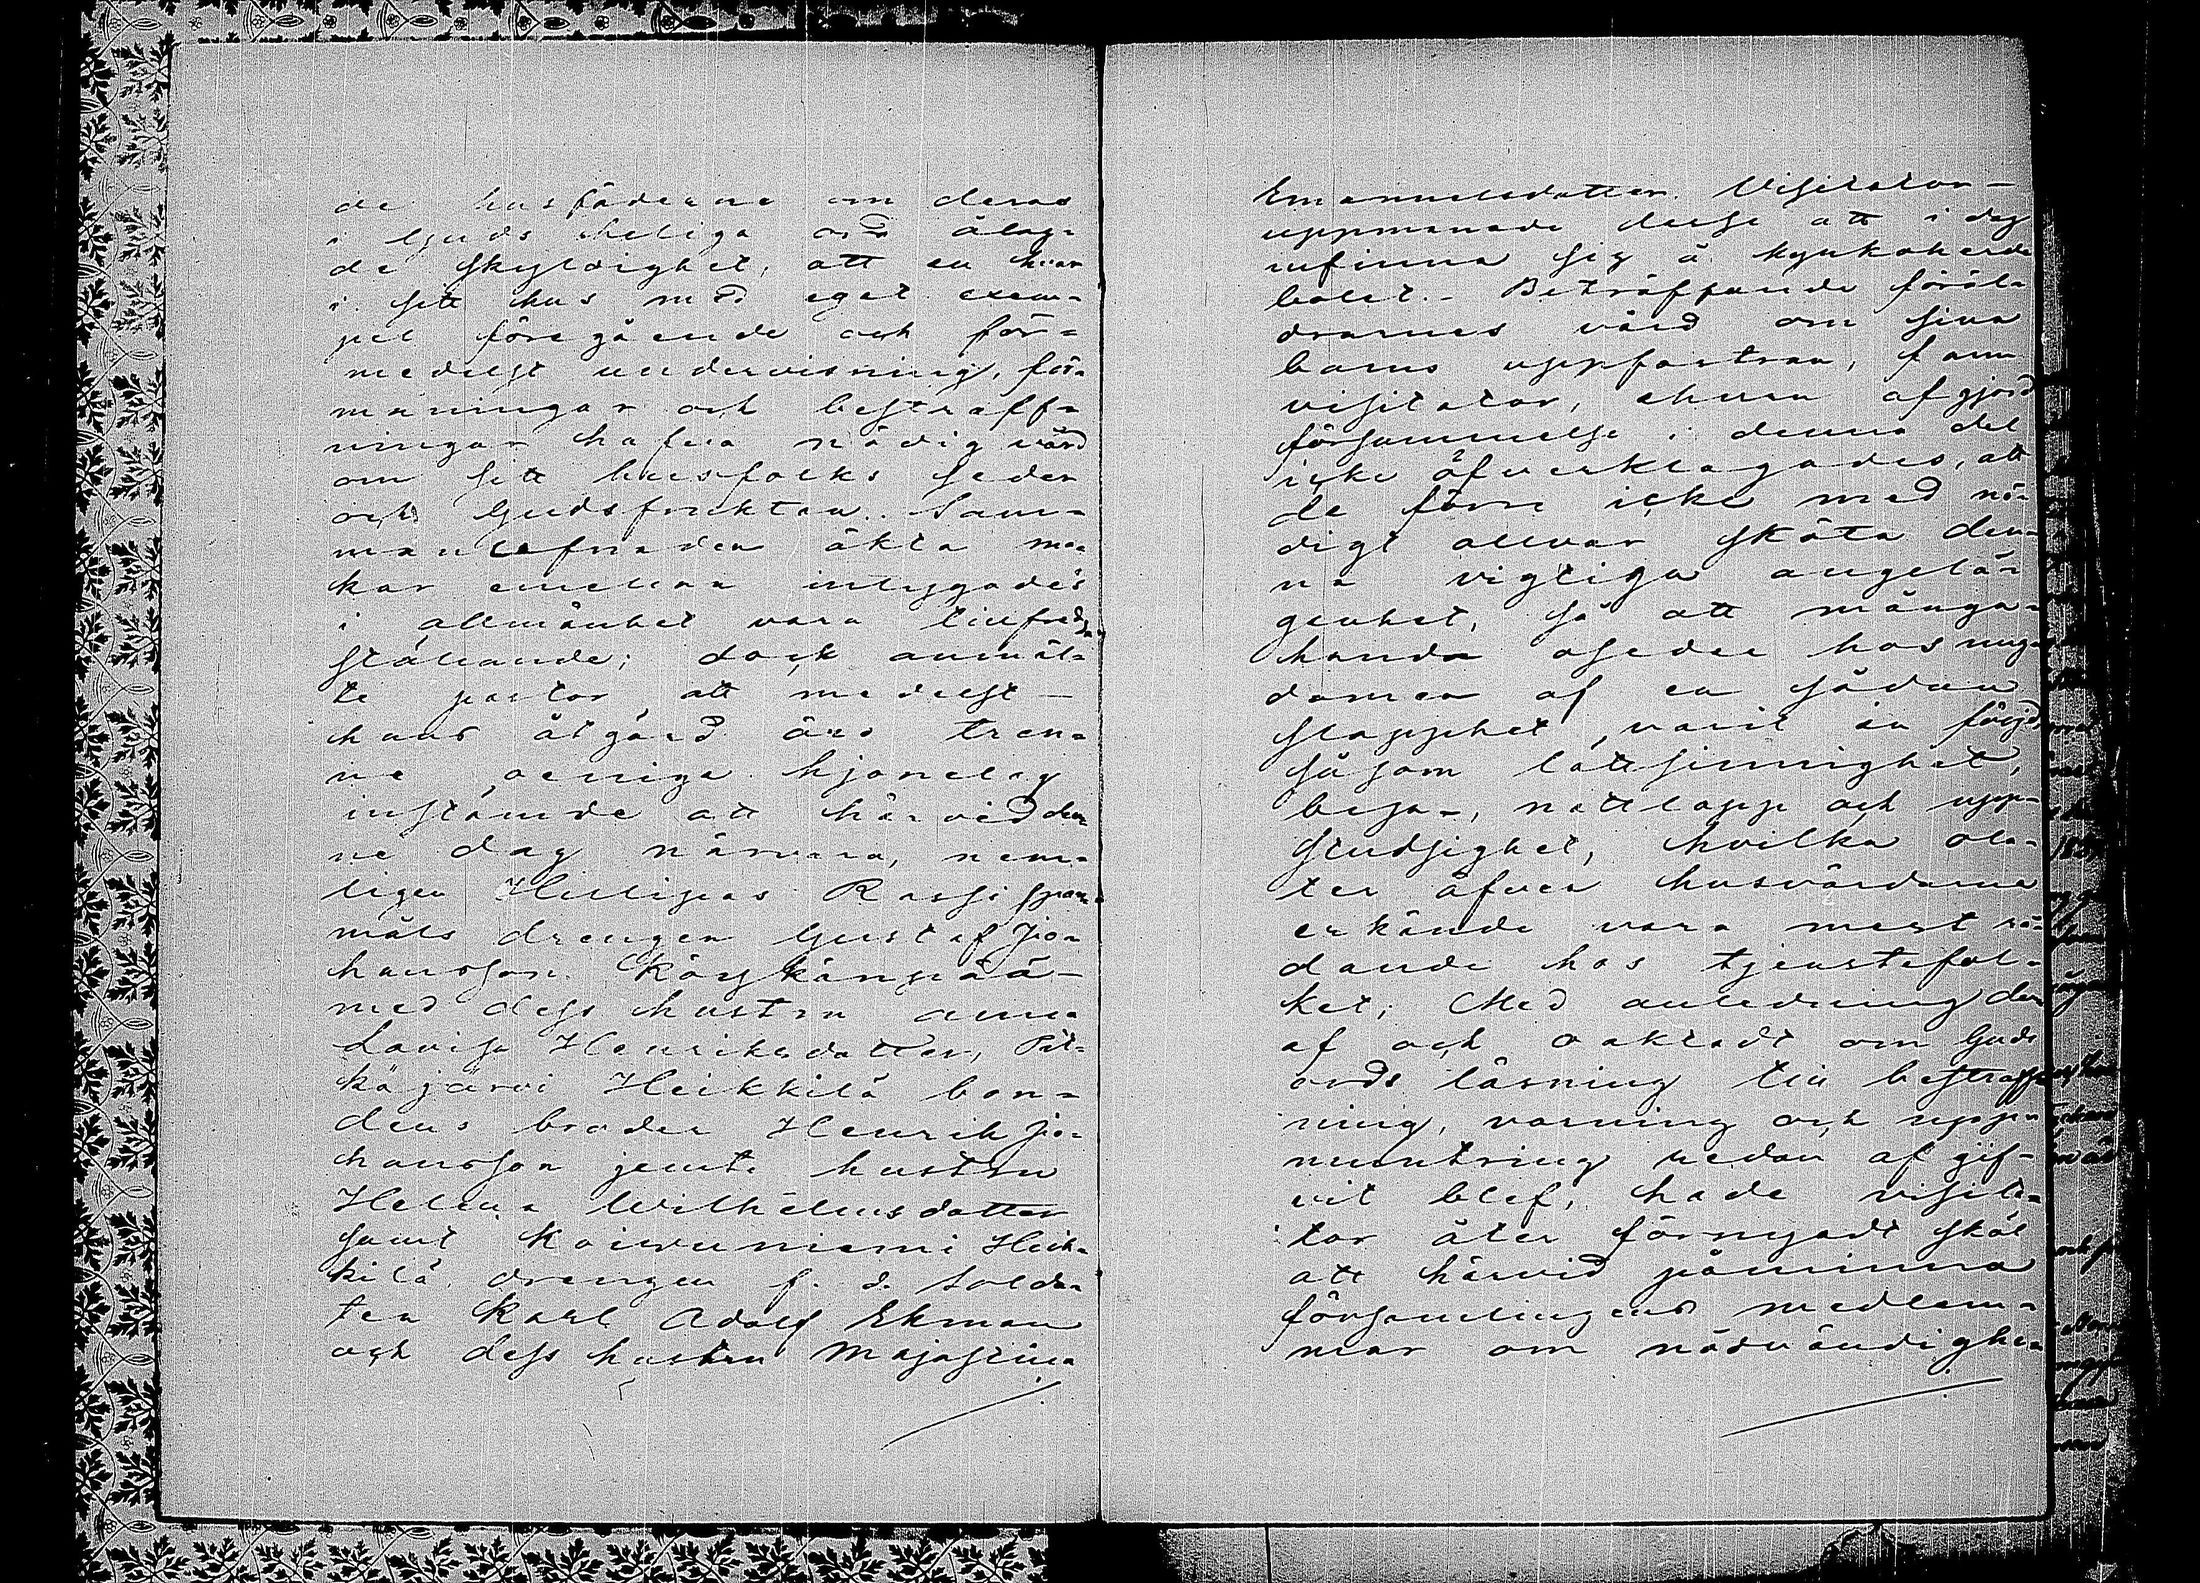 de husfäderne om deras
i Guds heliga ord ålag=
de skyldighet, att en hvar
i sitt hus med eget exem=
pel föregående och för=
medelst undervisning, för=
maningar och bestraff=
ningar hafva nödig vård
om sitt husfolks seder
och Gudsfruktan. Sam=
manlefnaden äkta ma=
kar emellan intygades
i allmänhet vara tillfreds
ställande; dock anmäl=
te pastor att medelst
hans åtgärd äro tren=
ne oeniga hjonelag
instämde att här vid den=
ne dag närvara, nem=
ligen Hillipas Rassi span=
måls drengen Gustaf Jo=
hansson Köykänpää
med dess hustru Anna
Lovisa Henriksdotter, Pit=
käjärvi Heikkilä bon=
dens broder Henrik Jo=
hansson jemte hustru
Helena Wilhelmsdotter
samt Koivuniemi Heik=
kilä drengen f. d. solda=
ten Karl Adolf Ekman
och dess hustru Majastina
Emanuelsdotter. Visitator
uppmanade desse att i dag
infinna sig å kyrkoherde
bolet. Beträffande föräl=
drarnes vård om sina
barns uppfostran, fann
visitator, ehuru afgjord
försummelse i denna del
icke öfverklagades, att
de förre icke med nö=
digt allvar sköta den=
na vigtiga angelä=
genhet, så att många=
handa oseder hos ung=
domen af en sådan
slapphet varit en följd
såsom lättsinnighet,
bega=, nattlopp och upp=
studsighet, hvilka ola=
ter äfven husvärdarne
erkände vara mest rå=
dande hos tjenstefol=
ket; Med anledning der
af och oaktadt om Guds
ords läsning till bestraff=
ning, varning och upp=
muntring redan af gif=
vit blef, hade visita=
tor åter förnyadt skäl
att härvid påminna
församlingens medlem=
mar om nödvändighe=